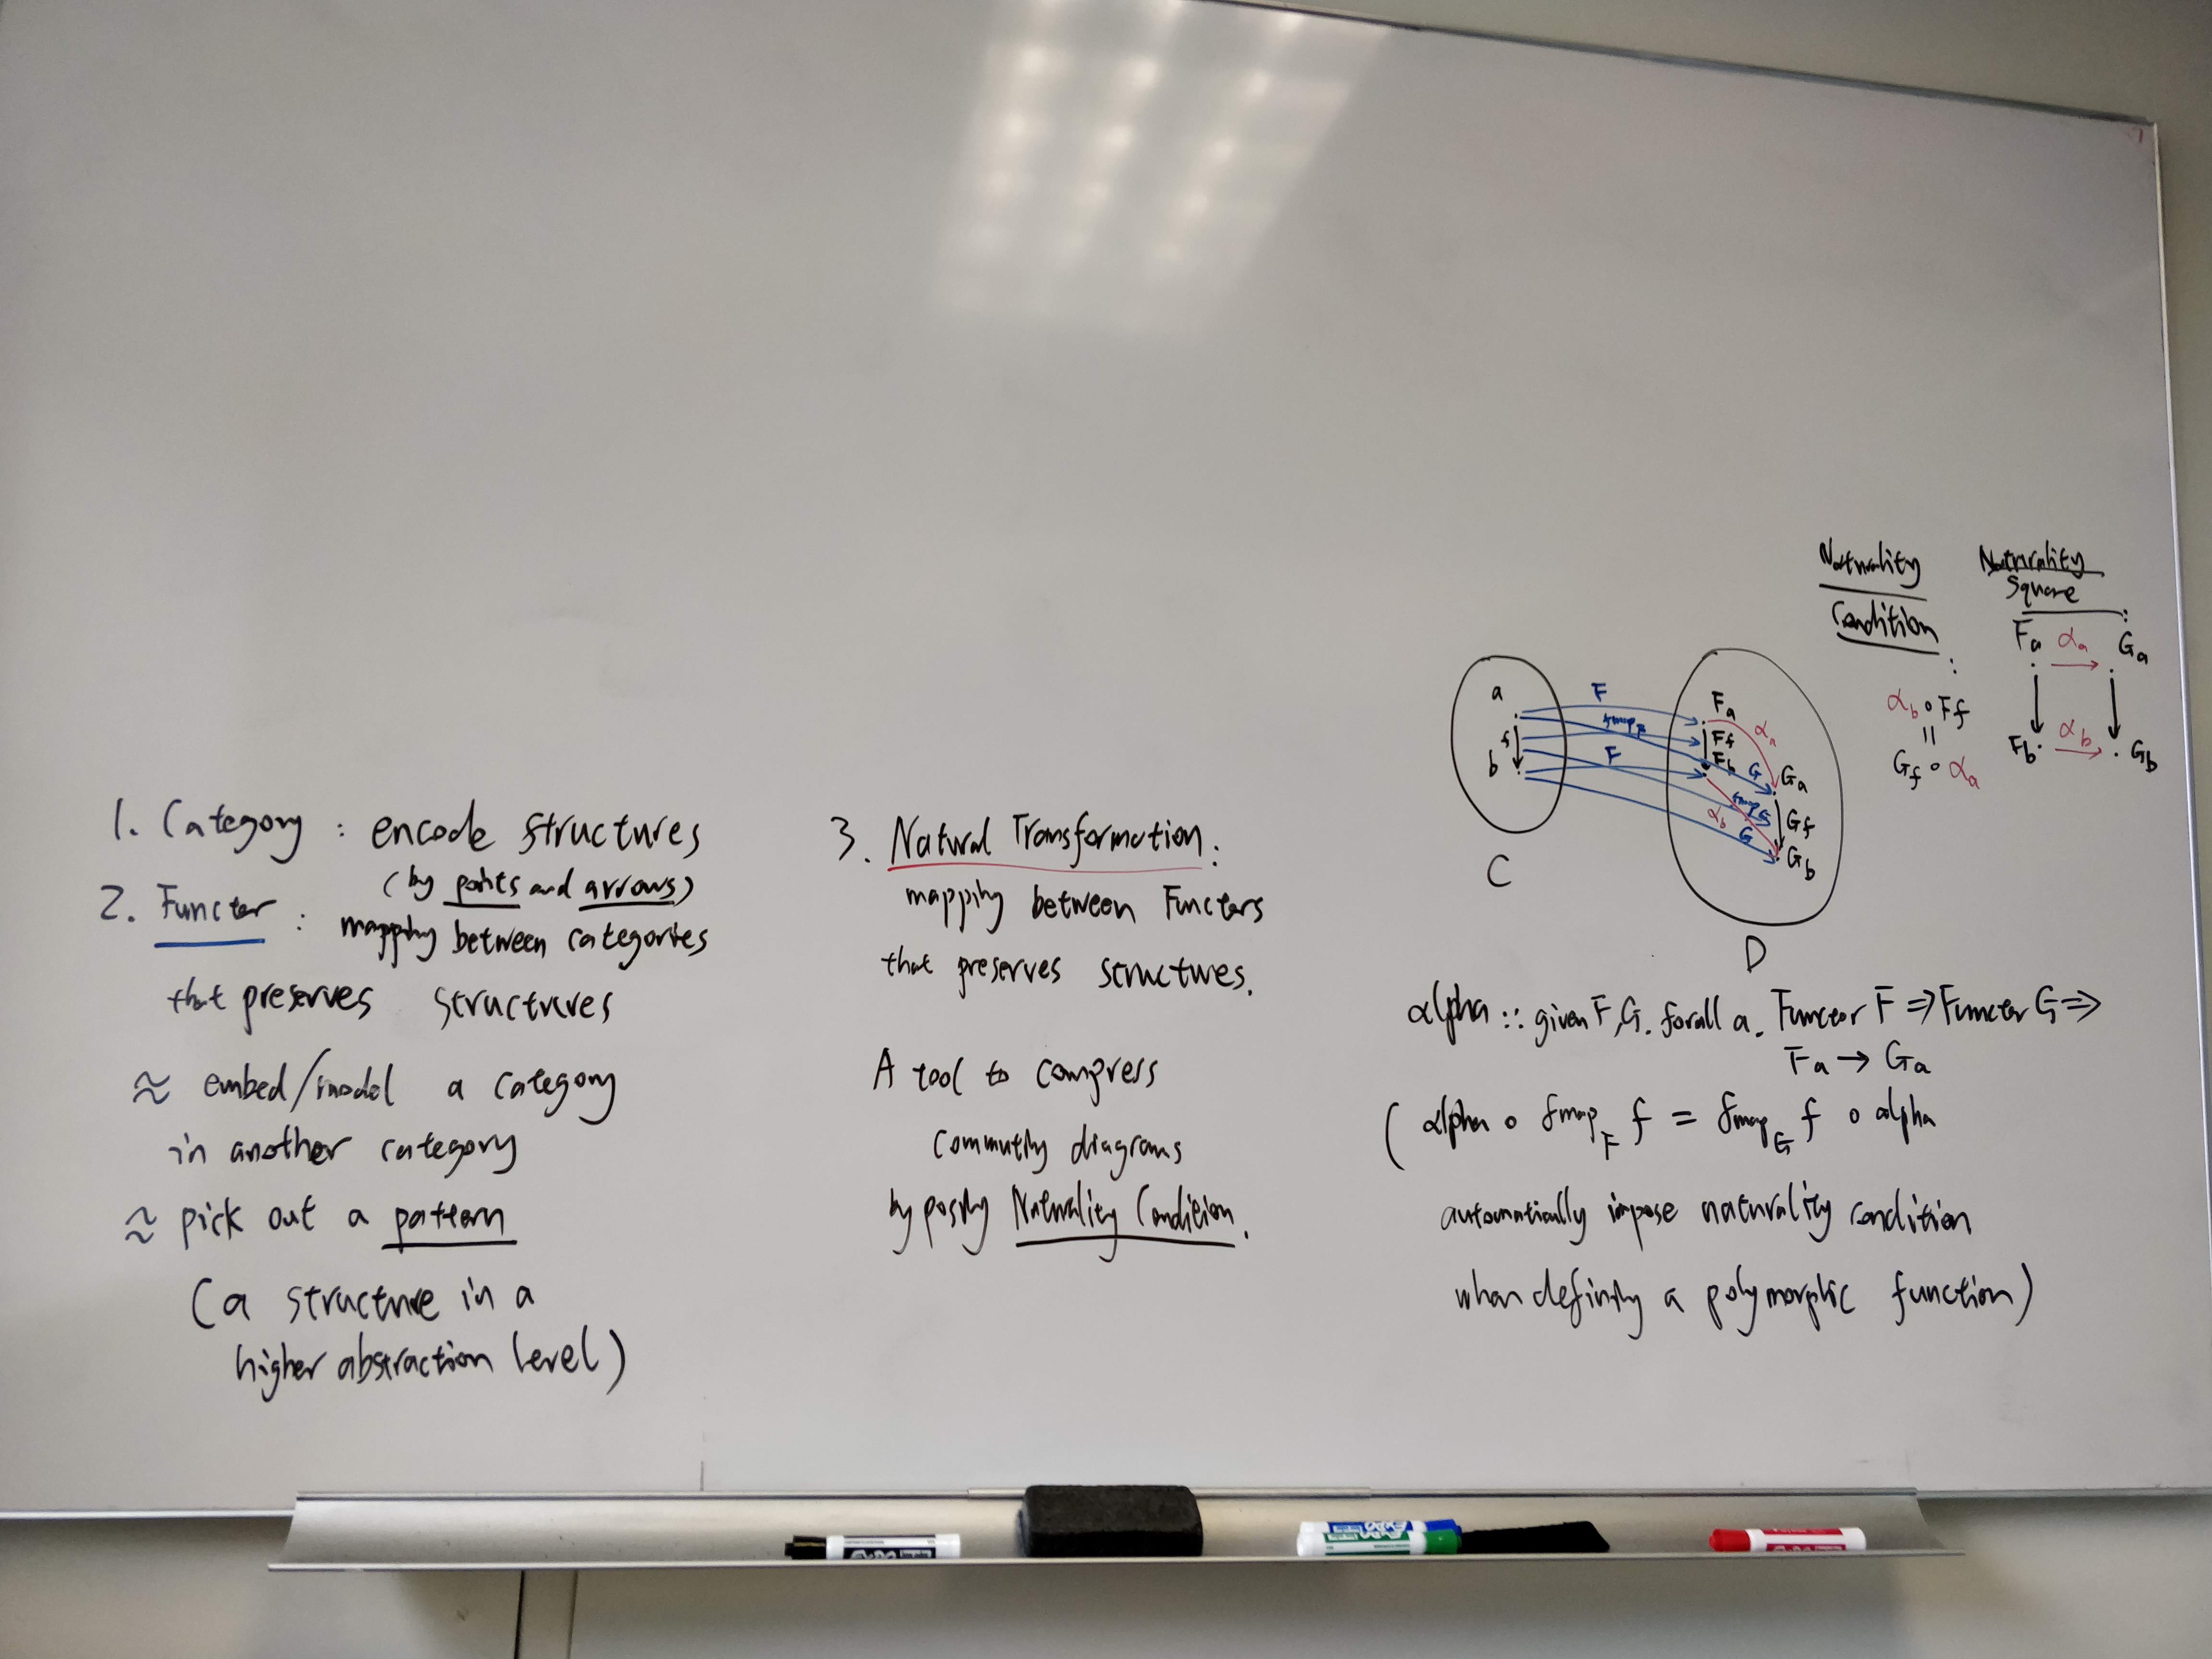 1. Category : encode structures
(by points and arrows)
2. Functor : mapping between categories
that preserves structures
≈ embed/model a category
in another category
≈ pick out a pattern
(a structure in a
higher abstraction level)
3. Natural Transformation :
mapping between Functors
that preserves structures.
A tool to compress
commuting diagrams
by posing Naturality Condition.
C
a
f
b
F
fmap F
F
G
fmap G
G
D
Fa
Ff
Fb
αa
αb
Ga
Gf
Gb
Naturality
Condition :
αb ∘ Ff
=
Gf ∘ αa
Naturality
Square :
Fa αa Ga
Fb αb Gb
alpha :: given F, G. forall a. Functor F ⇒ Functor G ⇒
Fa → Ga
( alpha ∘ fmap F f = fmap G f ∘ alpha
automatically impose naturality condition
when defining a polymorphic function)
EXPO